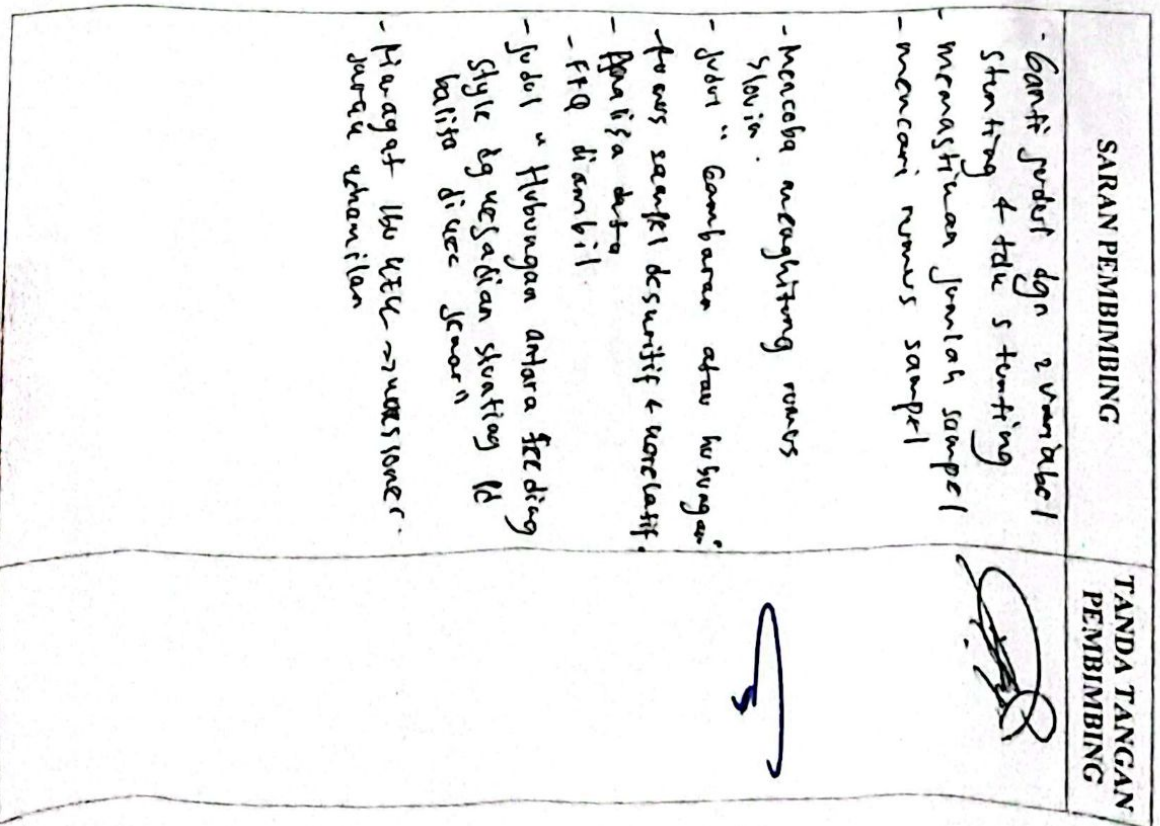 SARAN PEMBIMBING
TANDA TANGAN
PEMBIMBING
- Ganti judul dgn 2 variabel
stunting & tdk stunting
- memastikan jumlah sampel
- mencari rumus sampel
- Mencoba menghitung rumus
slovin.
- judul "Gambaran atau hubungan"
- rumus sampel deskritif & korelatif.
- Analisa data
- FFQ diambil
- judul "Hubungan antara feeding
style dg kejadian stunting pd
balita di kec
- Ibu KEK → kuesioner.
jarak kehamilan